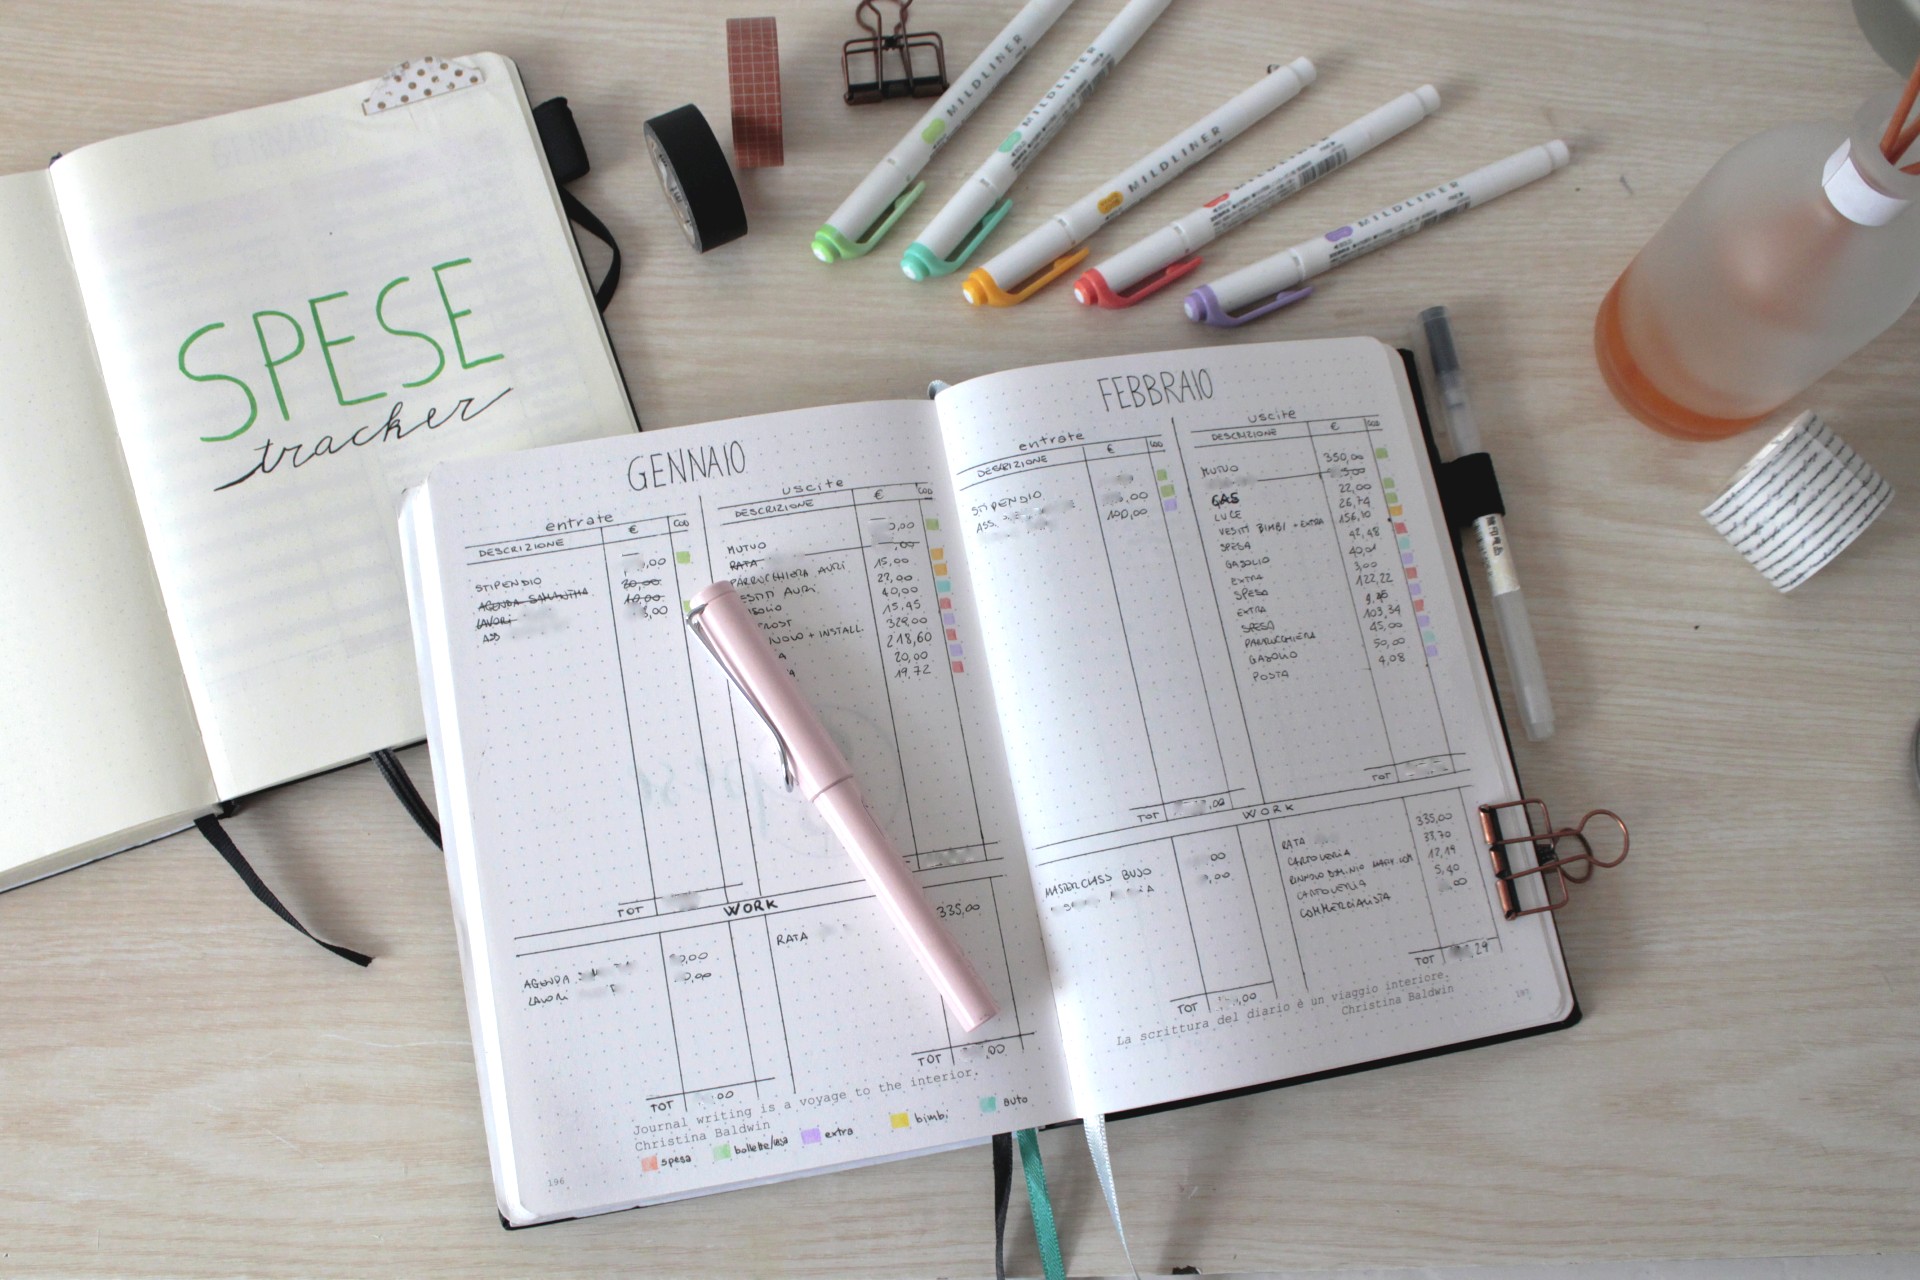 SPESE
tracker
MILDLINER
MILDLINER
MILDLINER
MILDLINER
MILDLINER
GENNAIO
entrate
DESCRIZIONE € COD
STIPENDIO ,00
AGENDA SAMANTHA 20,00
LAVORI 10,00
ASS 3,00
TOT
uscite
DESCRIZIONE € COD
MUTUO 0,00
RATA ,00
PARRUCCHIERA AURI 15,00
VESTITI AURI 27,00
40,00
15,45
NOLO + INSTALL. 329,00
218,60
20,00
19,72
WORK
AGENDA 0,00
LAVORI 0,00
TOT 00
RATA 335,00
TOT 00
Journal writing is a voyage to the interior.
Christina Baldwin
spesa bollette/casa extra bimbi auto
196
FEBBRAIO
entrate
DESCRIZIONE € COD
STIPENDIO ,00
ASS. 100,00
TOT ,00
uscite
DESCRIZIONE € COD
MUTUO 350,00
GAS 22,00
LUCE 26,74
VESTITI BIMBI + EXTRA 156,10
SPESA 42,48
GASOLIO 40,01
EXTRA 3,00
SPESA 122,22
EXTRA 9,95
SPESA 103,34
PARRUCCHIERA 45,00
GASOLIO 50,00
POSTA 4,08
TOT
WORK
MASTERCLASS BUJO ,00
,00
TOT ,00
RATA 335,00
CARTOLERIA 33,70
RINNOVO DOMINIO 12,19
CARTOLERIA 5,40
COMMERCIALISTA 00
TOT ,29
La scrittura del diario è un viaggio interiore.
Christina Baldwin
197